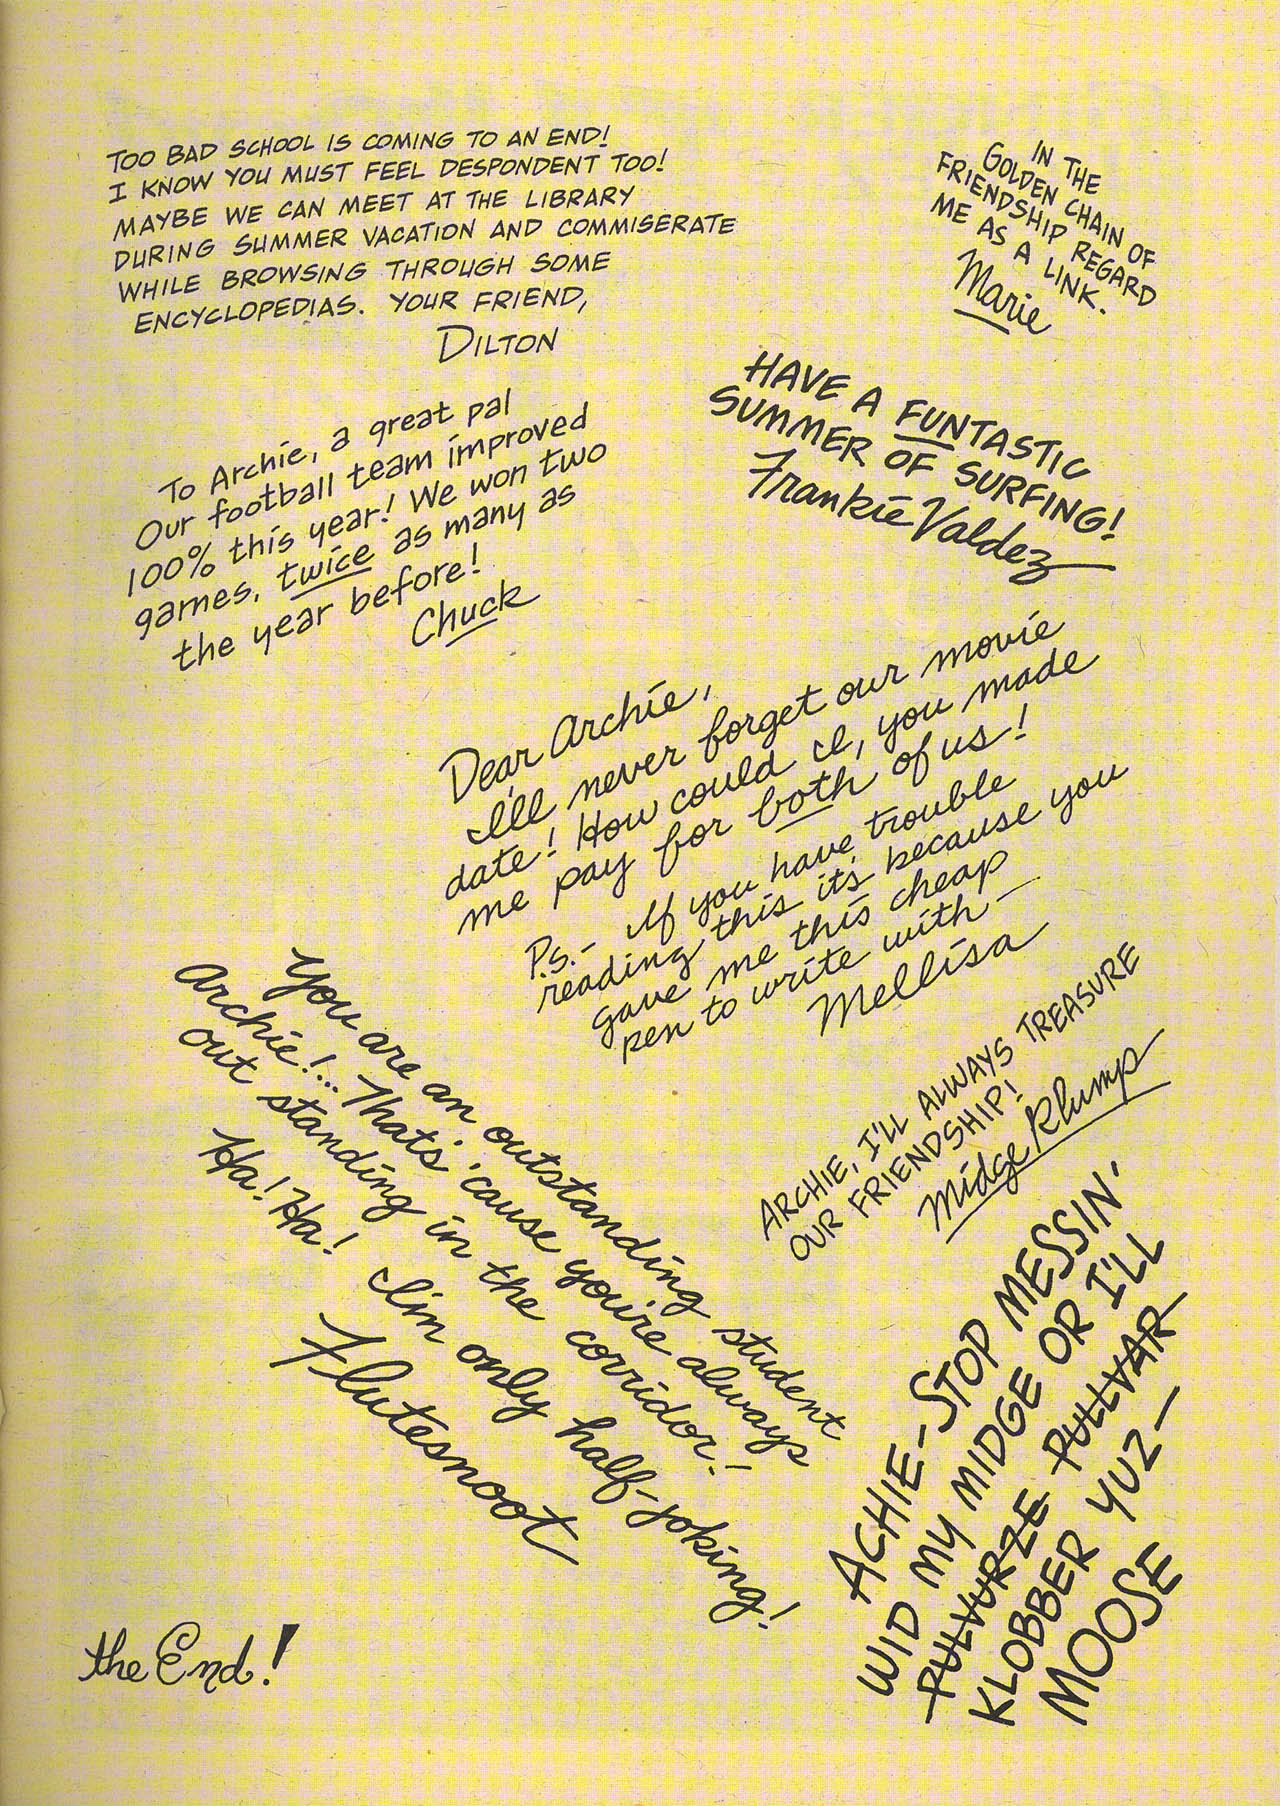 TOO BAD SCHOOL IS COMING TO AN END!
I KNOW YOU MUST FEEL DESPONDENT TOO!
MAYBE WE CAN MEET AT THE LIBRARY
DURING SUMMER VACATION AND COMMISERATE
WHILE BROWSING THROUGH SOME
ENCYCLOPEDIAS. YOUR FRIEND,
DILTON
IN THE
GOLDEN CHAIN OF
FRIENDSHIP REGARD
ME AS A LINK.
Marie
HAVE A FUNTASTIC
SUMMER OF SURFING!
Frankie Valdez
To Archie, a great pal
Our football team improved
100% this year! We won two
games, twice as many as
the year before!
Chuck
Dear Archie,
I'll never forget our movie
date! How could I, you made
me pay for both of us!
P.s.- If you have trouble
reading this it's because you
gave me this cheap
pen to write with—
Mellisa
You are an outstanding student
Archie!... That's 'cause you're always
out standing in the corridor!—
Ha! Ha! I'm only half-joking!
Flutesnoot
ARCHIE, I'LL ALWAYS TREASURE
OUR FRIENDSHIP!
Midge Klump
ACHIE-STOP MESSIN'
WID MY MIDGE OR I'LL
PULVURZE PULLVAR
KLOBBER YUZ—
MOOSE
the End!